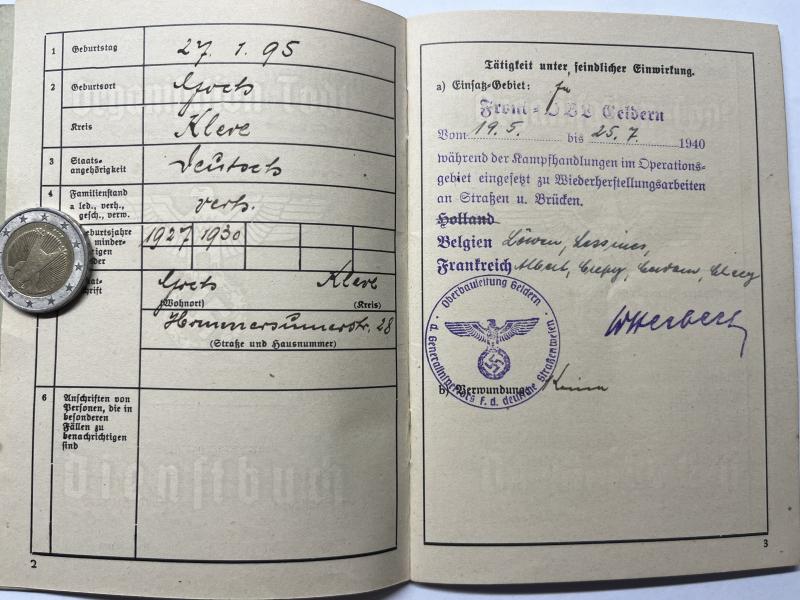 1 Geburtstag 27. 1. 95
2 Geburtsort Goch
Kreis Kleve
3 Staats-
angehörigkeit Deutsch
4 Familienstand
a led., verh., verh.
gesch., verw.
Geburtsjahre 1927 1930
minder-
Goch Kleve
(Wohnort) (Kreis)
28
(Straße und Hausnummer)
6 Anschriften von
Personen, die in
besonderen
Fällen zu
benachrichtigen
sind
Dienstbuch
2
Tätigkeit unter feindlicher Einwirkung.
a) Einsatz-Gebiet:
Front-OBL Geldern
Vom 19.5. bis 25.7. 1940
während der Kampfhandlungen im Operations-
gebiet eingesetzt zu Wiederherstellungsarbeiten
an Straßen u. Brücken.
Holland
Belgien Löwen, Lessines,
Frankreich Albert,
Oberbauleitung Geldern
d. Generalinspektors f. d. deutsche Straßenwesen
b) Verwundung: Keine
3